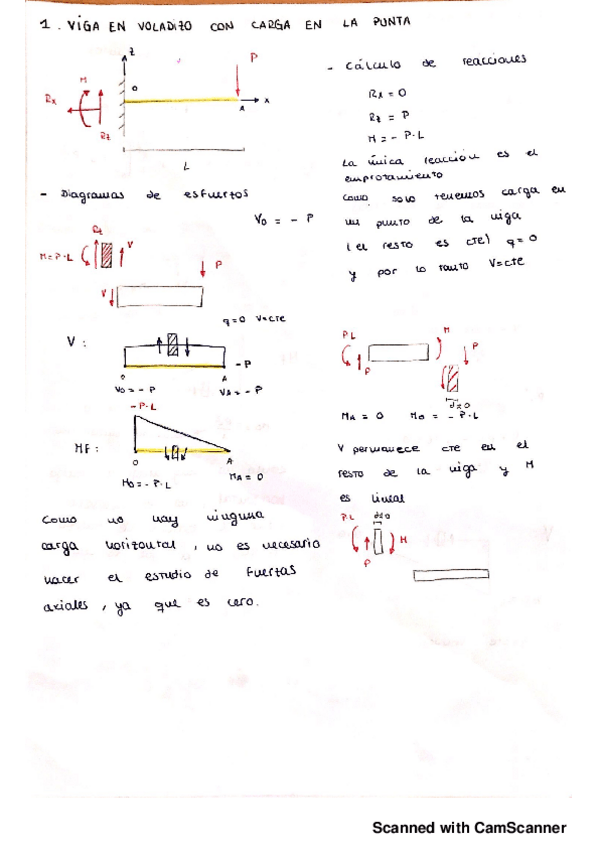 1. VIGA EN VOLADIZO CON CARGA EN LA PUNTA
z
P
M
Rx
O
A
x
Rz
L
- Cálculo de reacciones
Rx = 0
Rz = P
M = - P·L
La única reacción es el
empotramiento
Como solo tenemos carga en
un punto de la viga
(el resto es cte) q = 0
y por lo tanto V=cte
- Diagramas de esfuerzos
V0 = - P
Rz
M=P·L
V
P
V
q=0 V=cte
V:
-P
O
A
V0 = - P
VA = - P
-P·L
MF:
O
A
M0 = - P·L
MA = 0
PL
P
M
P
d≈0
MA = 0 M0 = - P·L
V permanece cte en el
resto de la viga y M
es lineal
P·L
d≈0
M
P
Como no hay ninguna
carga horizontal, no es necesario
hacer el estudio de fuerzas
axiales, ya que es cero.
Scanned with CamScanner